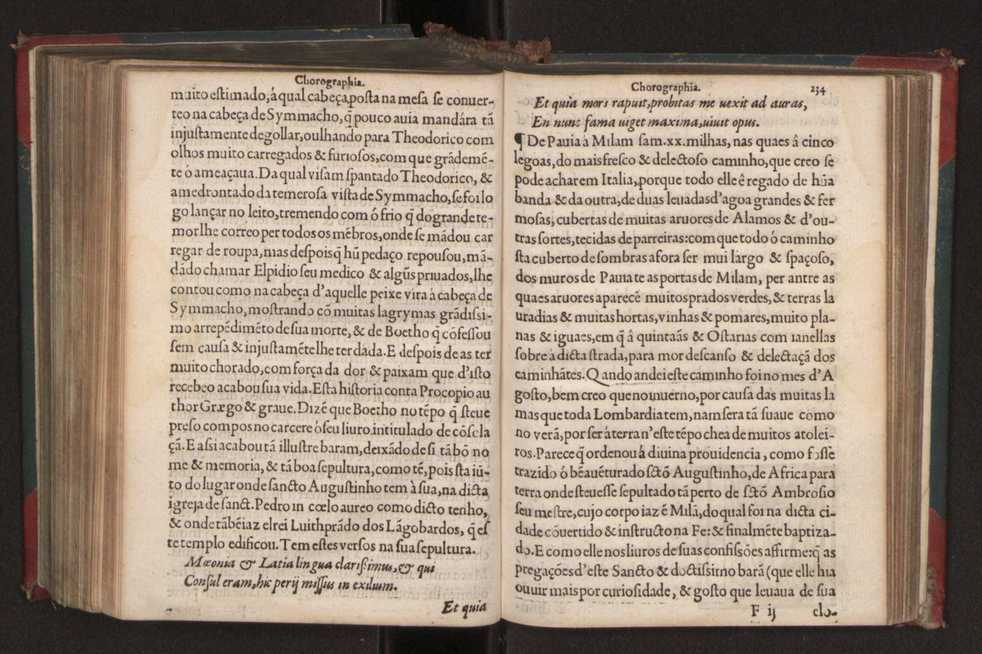 Chorographia.
muito estimado, â qual cabeça, posta na mesa se conuer-
teo na cabeça de Symmacho, q̃ pouco auia mandâra tã
injustamente degollar, oulhando para Theodorico com
olhos muito carregados & furiosos, com que grãdemẽ-
te o ameaçaua. Da qual visam spantado Theodorico, &
amedrontado da temerosa vista de Symmacho, se foi lo
go lançar no leito, tremendo com ó frio q̃ do grande te-
mor lhe correo per todos os mẽbros, onde se mãdou car
regar de roupa, mas despois q̃ hũ pedaço repousou, mã-
dãdo chamar Elpidio seu medico & algũs priuados, lhe
contou como na cabeça d'aquelle peixe vira à cabeça de
Symmacho, mostrando cõ muitas lagrymas grãdissi-
mo arrepẽdimẽto de sua morte, & de Boetho q̃ cõfessou
sem causa & injustamẽte lhe ter dada. E despois de as ter
muito chorado, com força da dor & paixam que d'isto
recebeo acabou sua vida. Esta historia conta Procopio au
thor Grægo & graue. Dizẽ que Boetho no tẽpo q̃ steue
preso compos no carcere ò seu liuro intitulado de cõsola
çã. E assi acabou tã illustre baram, deixãdo de si tã bõ no
me & memoria, & tã boa sepultura, como tẽ, pois sta iũ-
to do lugar onde sancto Augustinho tem à sua, na dicta
igreja de sanct. Pedro in cœlo aureo como dicto tenho,
& onde tãbẽ iaz el rei Luithprãdo dos Lãgobardos, q̃ es
te templo edificou. Tem estes versos na sua sepultura.
Mœonia & Latia lingua clarissimus, & qui
Consul eram, hic perij missus in exilium.
Et quia
Chorographia. 234
Et quia mors rapuit, probitas me uexit ad auras,
En nunc fama uiget maxima, uiuit opus.
¶ De Pauia à Milam sam .xx. milhas, nas quaes â cinco
legoas, do mais fresco & delectoso caminho, que creo se
pode achar em Italia, porque todo elle ê regado de hũa
banda & da outra, de duas leuadas d'agoa grandes & fer
mosas, cubertas de muitas aruores de Alamos & d'ou-
tras sortes, tecidas de parreiras: com que todo ó caminho
sta cuberto de sombras afora ser mui largo & spaçoso,
dos muros de Pauia te as portas de Milam, per antre as
quaes aruores aparecẽ muitos prados verdes, & terras la
uradias & muitas hortas, vinhas & pomares, muito pla-
nas & iguaes, em q̃ â quintaãs & Ostarias com ianellas
sobre à dicta strada, para mor descanso & delectaçã dos
caminhãtes. Quando andei este caminho foi no mes d'A
gosto, bem creo que no inuerno, por causa das muitas la
mas que toda Lombardia tem, nam sera tã suaue como
no verã, por ser à terra n'este tẽpo chea de muitos atolei-
ros. Parece q̃ ordenou à diuina prouidencia, como fosse
trazido ó bẽauẽturado sctõ Augustinho, de Africa para
terra onde steuesse sepultado tã perto de sctõ Ambrosio
seu mestre, cujo corpo iaz ẽ Milã, do qual foi na dicta ci-
dade cõuertido & instructo na Fe: & finalmẽte baptiza-
do. E como elle nos liuros de suas confissões affirme: q̃ as
pregações d'este Sancto & doctissimo barã (que elle hia
ouuir mais por curiosidade, & gosto que leuaua de sua
F ij clo-